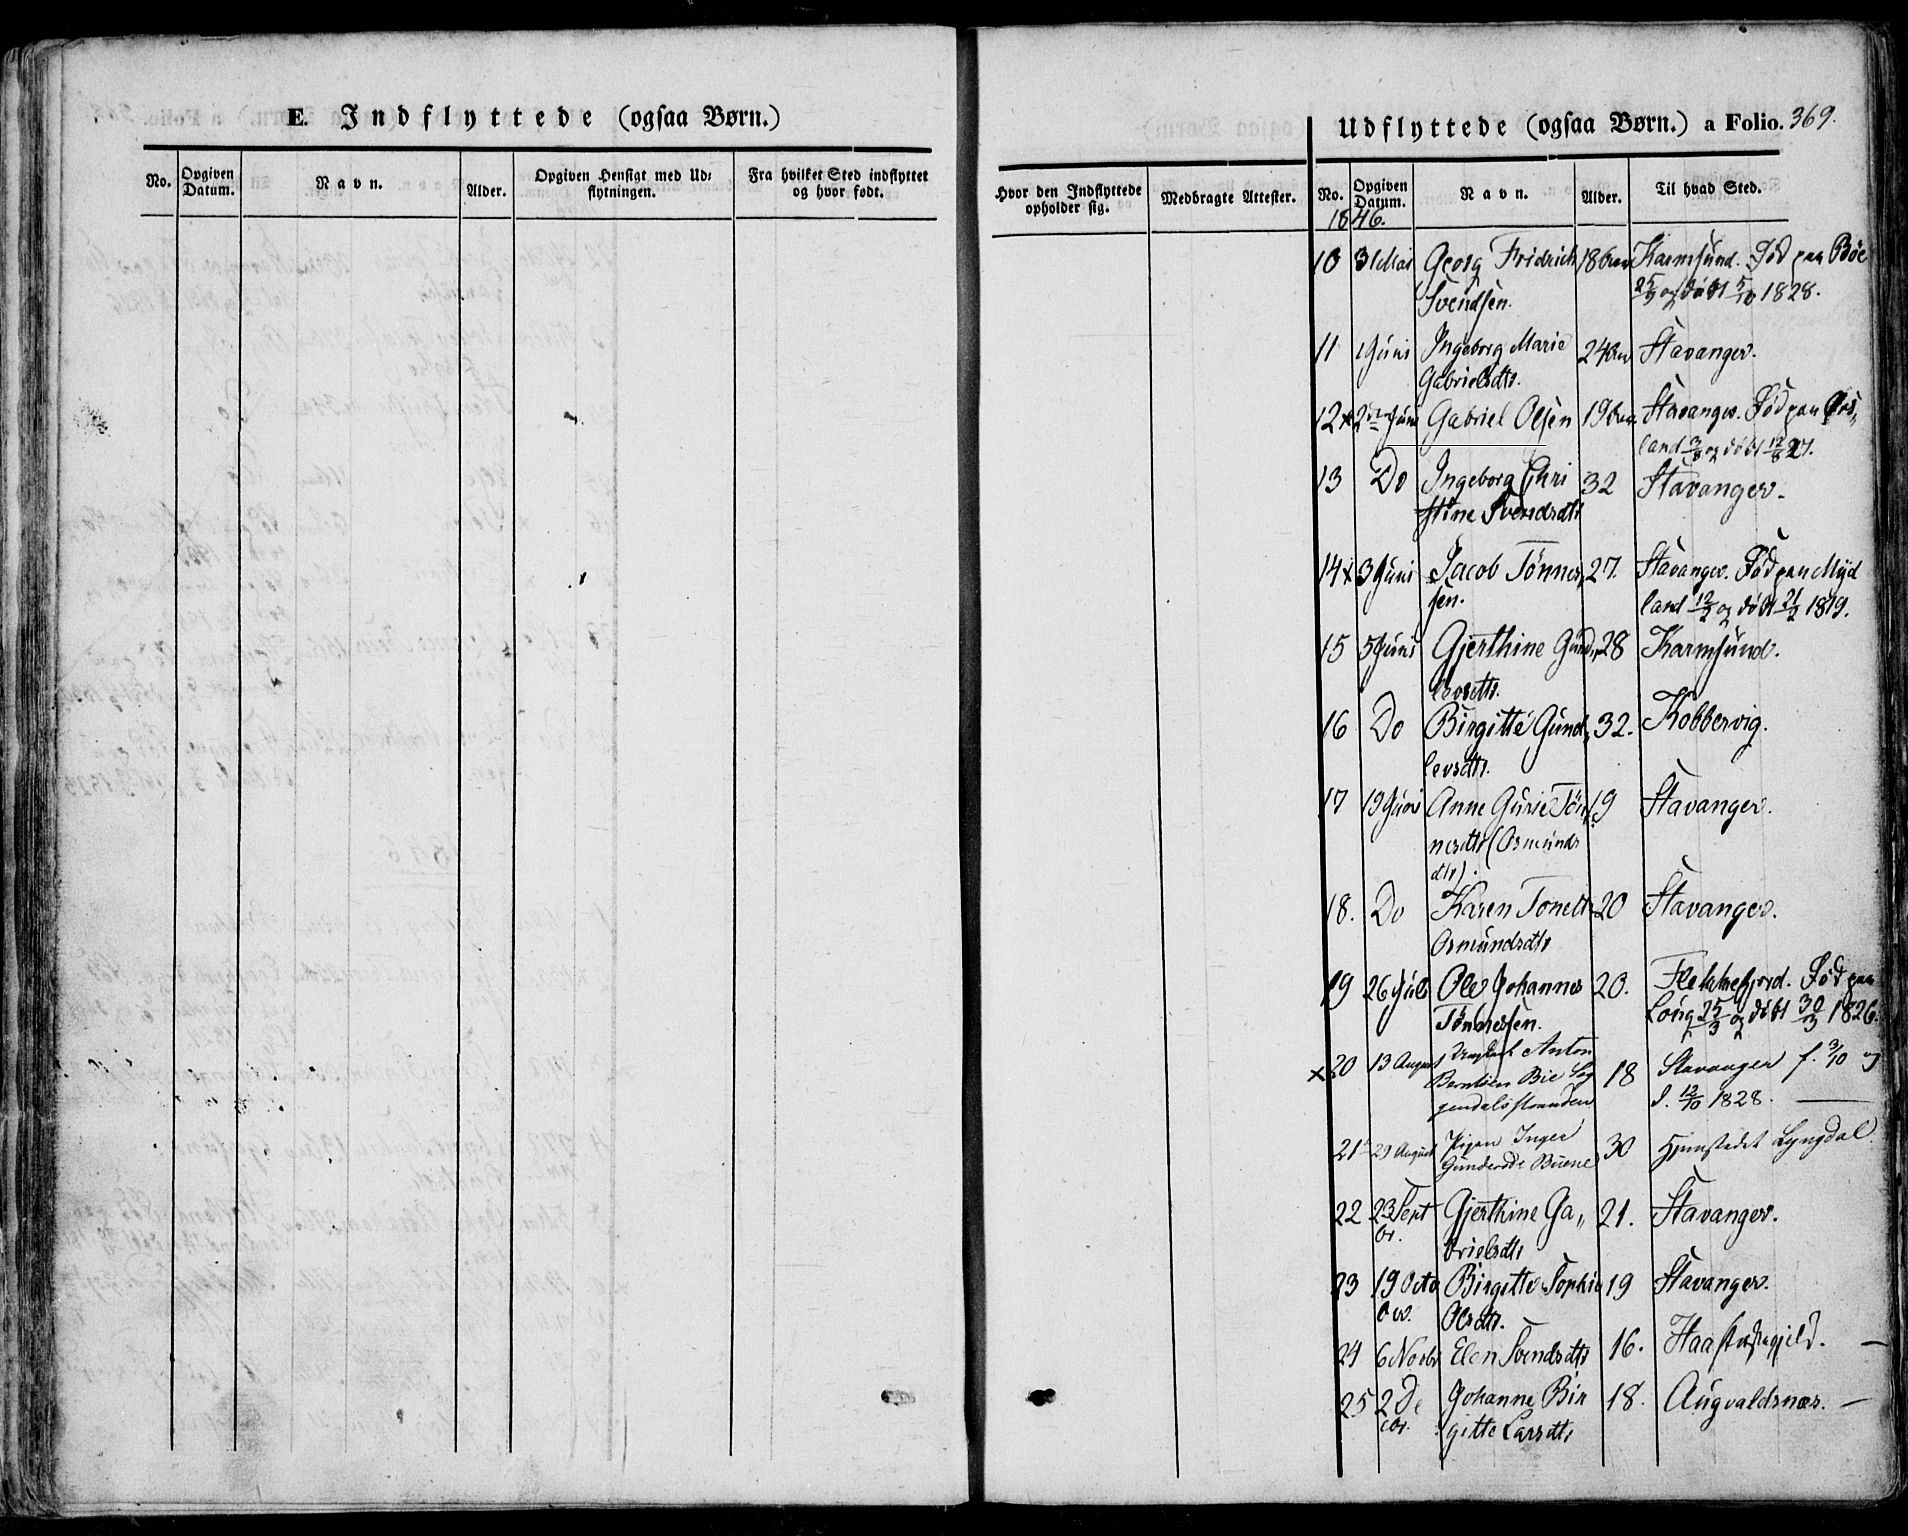 E. Indflyttede (ogsaa Børn.)
No.
Opgiven Datum.
Navn.
Alder.
Opgiven Hensigt med Ud=
flytningen.
Fra hvilket Sted indflyttet
og hvor født.
Hvor den Indflyttede
opholder sig.
Medbragte Attester.
Udflyttede (ogsaa Børn.) a Folio. 369.
No.
Opgiven Datum.
Navn.
Alder.
Til hvad Sted.
1846.
10 31 Mai Georg Fridrich 18 Karmsund. Fød paa Bøe
Svendsen. 25/9 og døbt 5/10 1828.
11 1 Juni Ingeborg Marie 24 Stavanger.
Gabrielsdtr.
12 x 2den Juni Gabriel Olsen 19 Stavanger. Fød paa
land og døbt 12/8 27.
13 Do Ingeborg Chri 32 Stavanger.
stine Svendsdtr
14 x 3 Juni Jacob Tønnes, 27. Stavanger. Fød paa Myd
sen. land 12/2 og døbt 21/2 1819.
15 5 Juni Gjerthine Gund, 28 Karmsund.
levsdtr.
16 Do Birgitte Gund, 32. Kobbervig.
levsdtr.
17 19 Juni Anne Gurie Tøn, 19 Stavanger.
nesdtr (Osmunds
dtr).
18. Do Karen Tonett 20 Stavanger.
Osmundsdtr
19 26 Juli Ole Johannes 20. Flekkefjord. Fød paa
Tønnessen. Løng 25/3 og døbt 30/3 1826.
x 20 13 August Anton
Berntsen Bie Sog 18 Stavanger f. 3/10 og
gendalsstranden d. 12/10 1828.
21 29 August Pigen Inger 30 Hjemstedet Lyngdal
Gundersdtr Buene
22 23 Sept Gjerthine Ga, 21. Stavanger.
br. brielsdtr
23 19 Octo Birgitte Sophie 19 Stavanger.
ber. Olsdtr.
24 6 Novbr Elen Svendsdtr 16. Haa Præstegjeld.
25 2 De Johanne Bir 18. Augvaldsnæs.
cbr. gitte Larsdtr